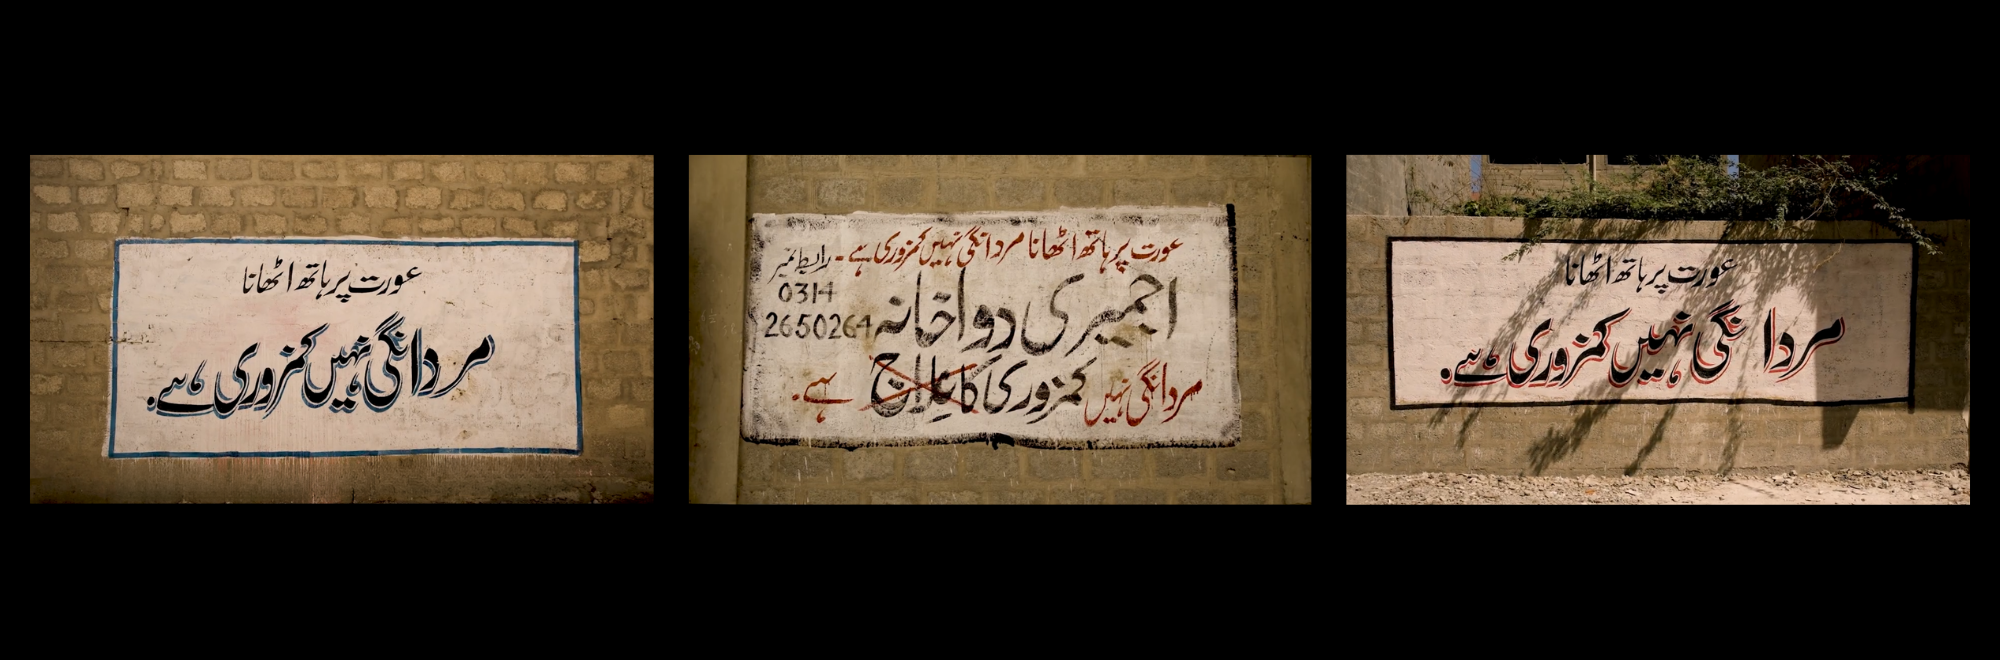 عورت پر ہاتھ اٹھانا
مردانگی نہیں کمزوری ہے۔
عورت پر ہاتھ اٹھانا مردانگی نہیں کمزوری ہے۔
رابطہ نمبر
0314
2650264
اجمیری دواخانہ
مردانگی نہیں کمزوری کا علاج ہے۔
عورت پر ہاتھ اٹھانا
مردانگی نہیں کمزوری ہے۔